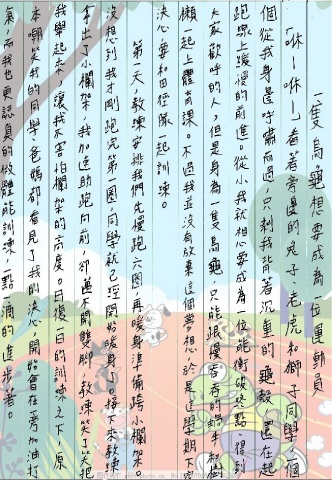 一隻烏龜想要成為一位運動員
「咻－咻－」看著旁邊的兔子、老虎和獅子同學一個
個從我身邊呼嘯而過，只剩我背著沉重的龜殼還在起
跑線上緩慢的前進。從小我就想要成為一位能衝破終點、得到
大家歡呼的人，但是身為一隻烏龜，只能跟慢吞吞的蝸牛和樹
懶一起上體育課。不過我並沒有放棄這個夢想，於是這學期下定
決心要和田徑隊一起訓練。
第一天，教練安排我們先慢跑六圈再暖身準備跨小欄架。
沒想到我才剛跑完第一圈，同學就已經開始暖身了。接下來教練
拿出了小欄架，我加速助跑向前，卻邁不開雙腳，教練笑了笑把
我舉起來，讓我不害怕欄架的高度。日復一日的訓練之下，原
本嘲笑我的同學、爸媽都看見了我的決心，開始會在旁加油打
氣，而我也更認真的做體能訓練，一點一滴的進步著。